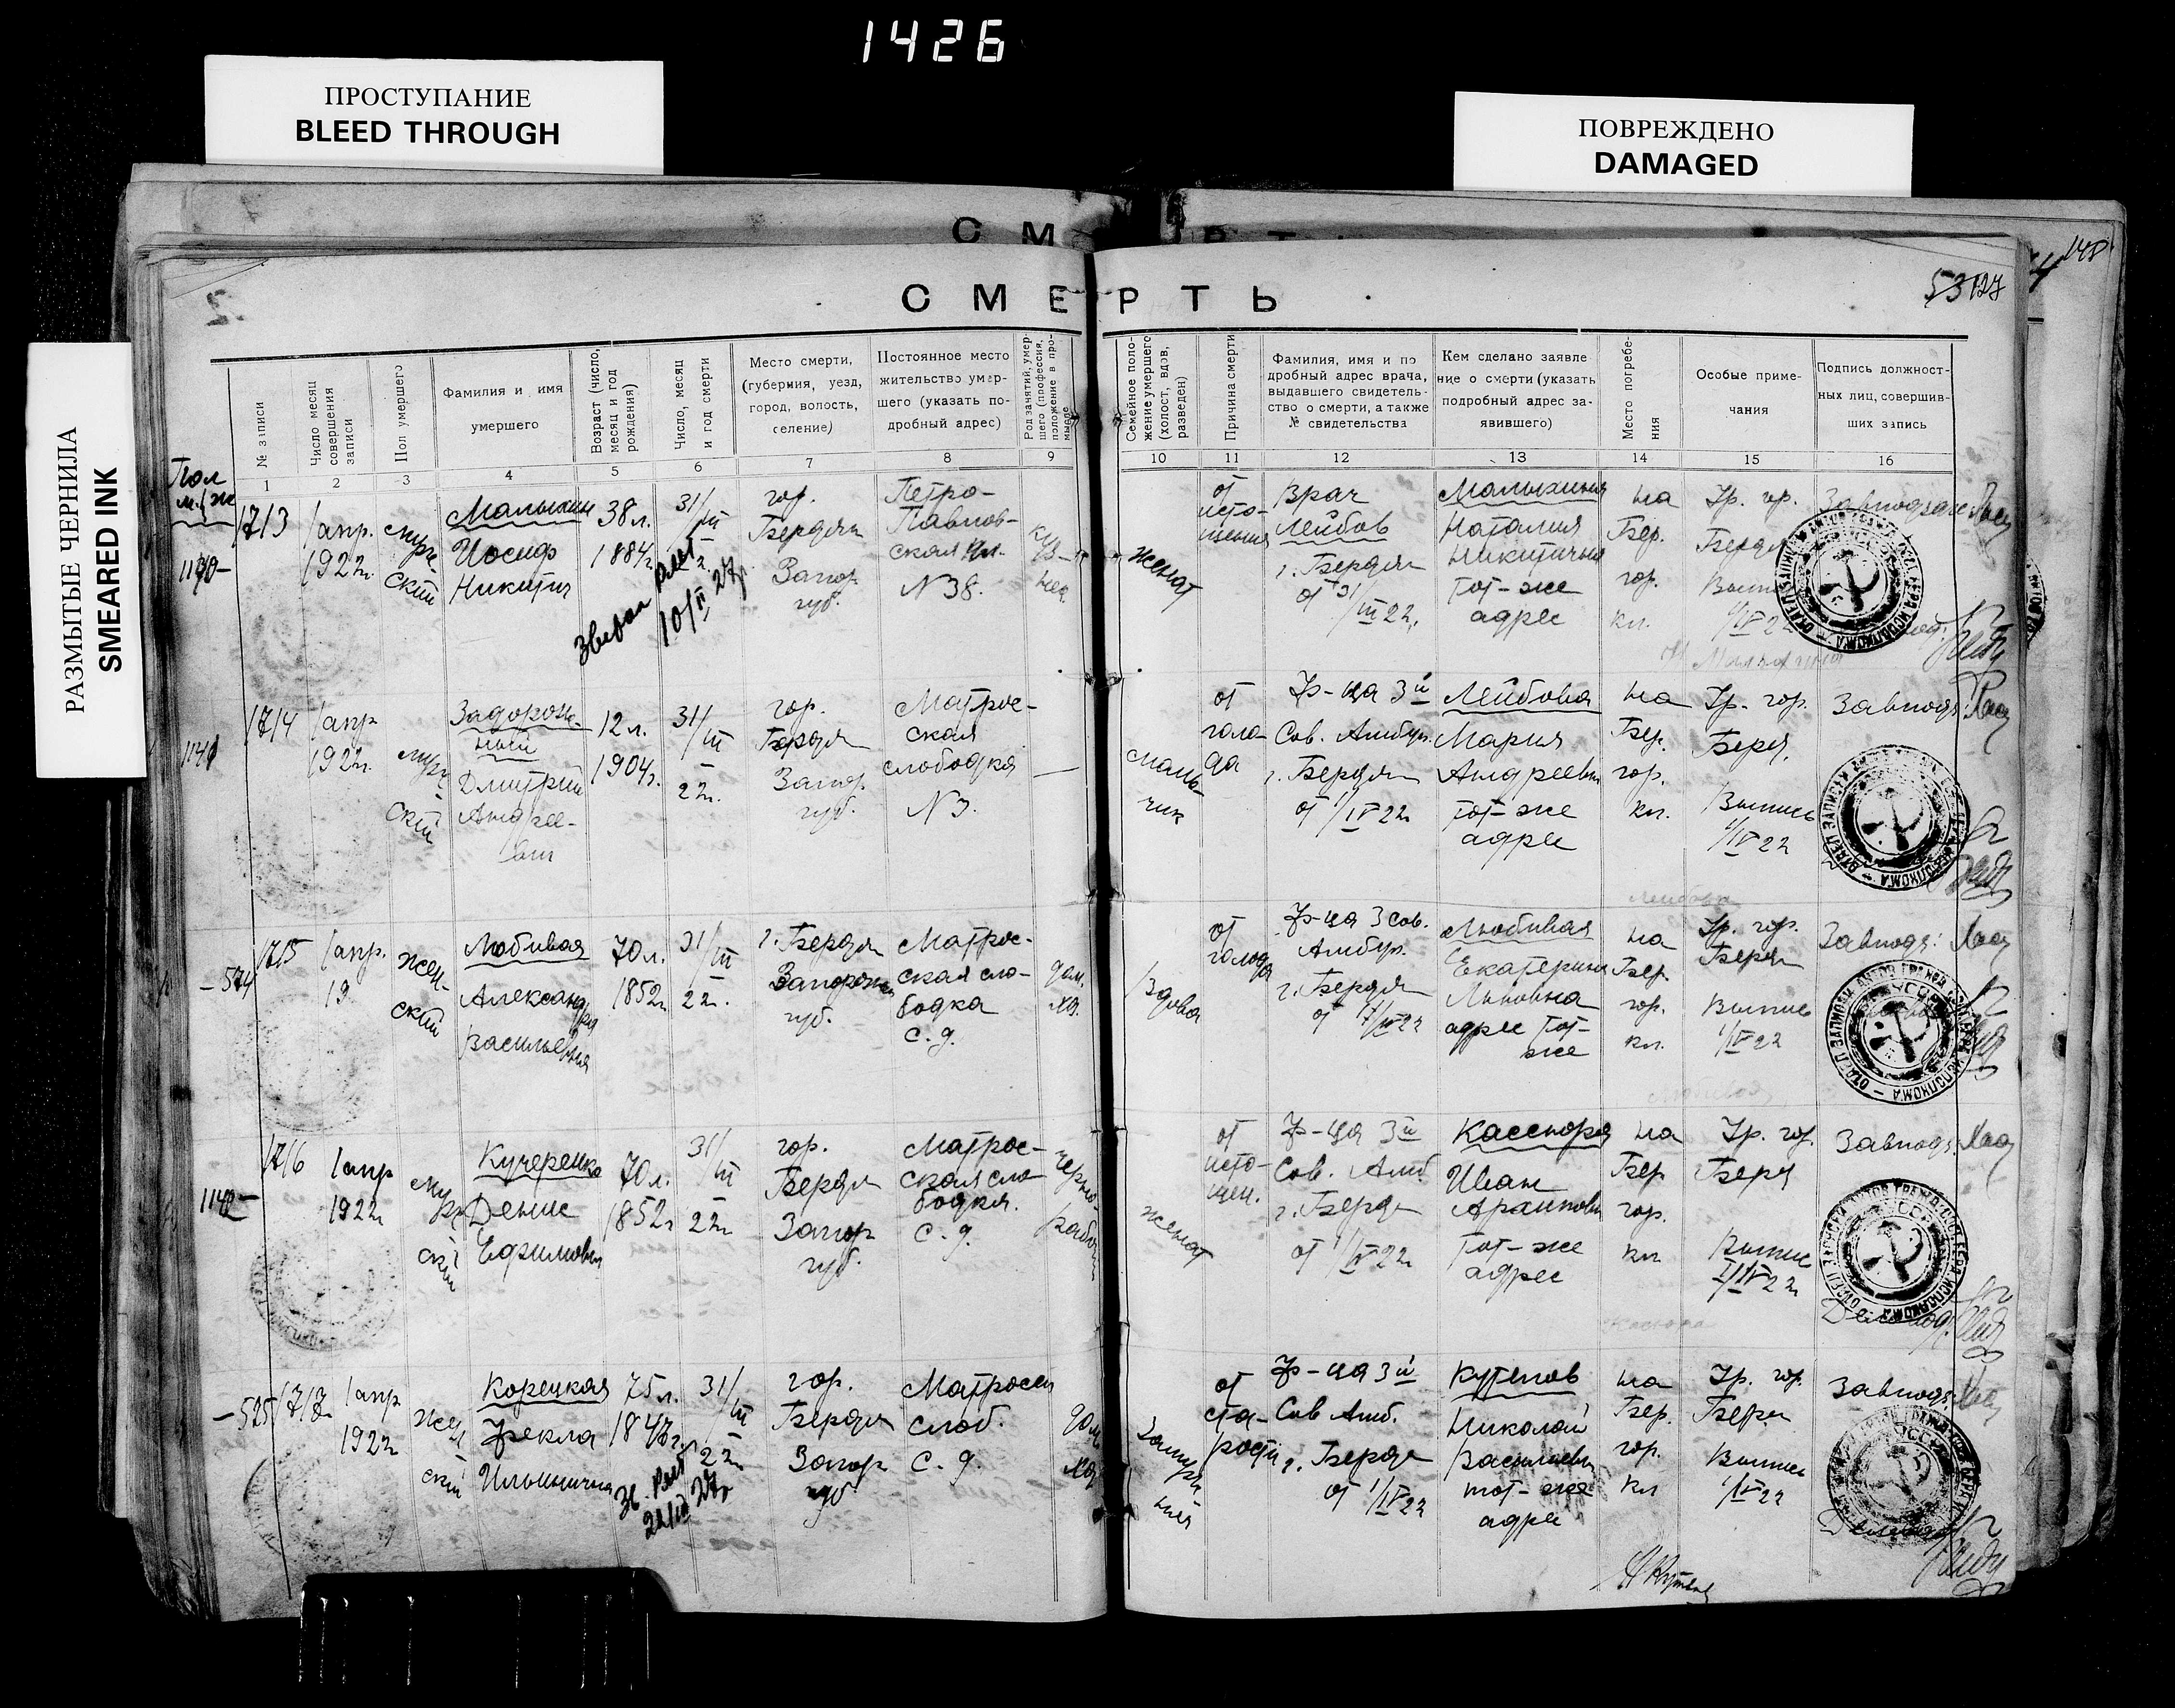 1426
ПРОСТУПАНИЕ
BLEED THROUGH
ПОВРЕЖДЕНО
DAMAGED
РАЗМЫТЫЕ ЧЕРНИЛА
SMEARED INK
СМЕРТЬ
53 127
148
№ записи
Число месяц совершения записи
Пол умершего
Фамилия и имя
умершего
Возраст (число, месяц и год рождения)
Число, месяц и год смерти
Место смерти,
(губерния, уезд,
город, волость,
селение)
Постоянное место
жительство умер-
шего (указать по-
дробный адрес)
Род занятий, умер-
шего (профессия,
положение в про-
мысле
Семейное поло-
жение умершего
(холост, вдов,
разведен)
Причина смерти
Фамилия, имя и по
дробный адрес врача,
выдавшего свидетель-
ство о смерти, а также
№ свидетельства
Кем сделано заявле
ние о смерти (указать
подробный адрес за-
явившего)
Место погребе-
ния
Особые приме-
чания
Подпись должност-
ных лиц, совершив-
ших запись
1 2 3 4 5 6 7 8 9 10 11 12 13 14 15 16
Пол
м. ж
1713
1 апр.
1922г.
муж-
ский
Малыхин
Иосиф
Никитич
38 л.
1884г.
31/III
гор.
Бердян
Запор.
губ.
Петро-
Павлов-
ская ул.
N 38.
куз-
нец
женат
от
исто-
щения
Врач
Лейбов
г. Бердян
от 31/III 22,
Малыхиня
Наталия
Никитична
тот-же
адрес
на
Бер.
гор.
кл.
Гр. гор.
10/II 27г.
1714
1 апр
1922г.
муж
ский
Задорож-
ный
Дмитрий
Андрее-
вич
12 л.
1904г.
31/III
22г.
гор.
Бердян
Запор.
губ.
Матрос-
ская
слободка
N 3.
—
маль-
чик
от
голо-
да
Ф-ца 3й
Сов. Амбул.
г. Бердян
от 1/IV 22г
Лейбова
Мария
Андреевн
тот-же
адрес
на
Бер.
гор.
кл.
Гр. гор.
Берд.
Выпись
1/IV 22
Завподз.
— 574
1715
1 апр.
19
жен-
ский
Любивая
Александра
Васильевна
70 л.
1852г
31/III
22г.
г. Бердян
Запорожск
губ.
Матрос-
ская сло-
бодка
с. д.
дом.
хоз.
Вдова
от
голода
Ф-ца 3 сов.
Амбул.
г. Бердян
от 1/IV 22
Любивая
Екатерина
Львовна
адрес тот-
же
на
Бер.
гор.
кл.
Гр. гор.
Бердян
Выпись
1/IV 22
Завподз:
1716
1 апр
1922г
муж
ский
Кучеренко
Денис
Ефимович
70 л.
1852г
31/III
22г
гор.
Бердян
Запор
губ.
Матрос-
ская сло
бодка.
с. д.
черно-
рабочий
женат
от
исто-
щен.
Ф-ца 3й
Сов. Амб
г. Бердян
от 1/IV 22г
Иван
Архипович
тот-же
адрес
на
Бер
гор.
кл
Гр. гор.
Берд
Выпис
1/IV 22
Завподз.
— 575
1717
1 апр
1922г
жен
ский
Корецкая
Фекла
Ильинична
75 л.
31/III
22г
гор.
Бердян
Запор
губ
Матросск
слоб.
с. д.
дом.
хоз.
от
ста-
рости
Ф-ца 3й
Сов Амб.
г. Бердян
от 1/IV 22
Кутепов
Николай
Васильевич
тот-же
адрес
на
Бер.
гор.
кл
Гр. гор.
Бердян
Выпись
1/IV 22
Завподз.